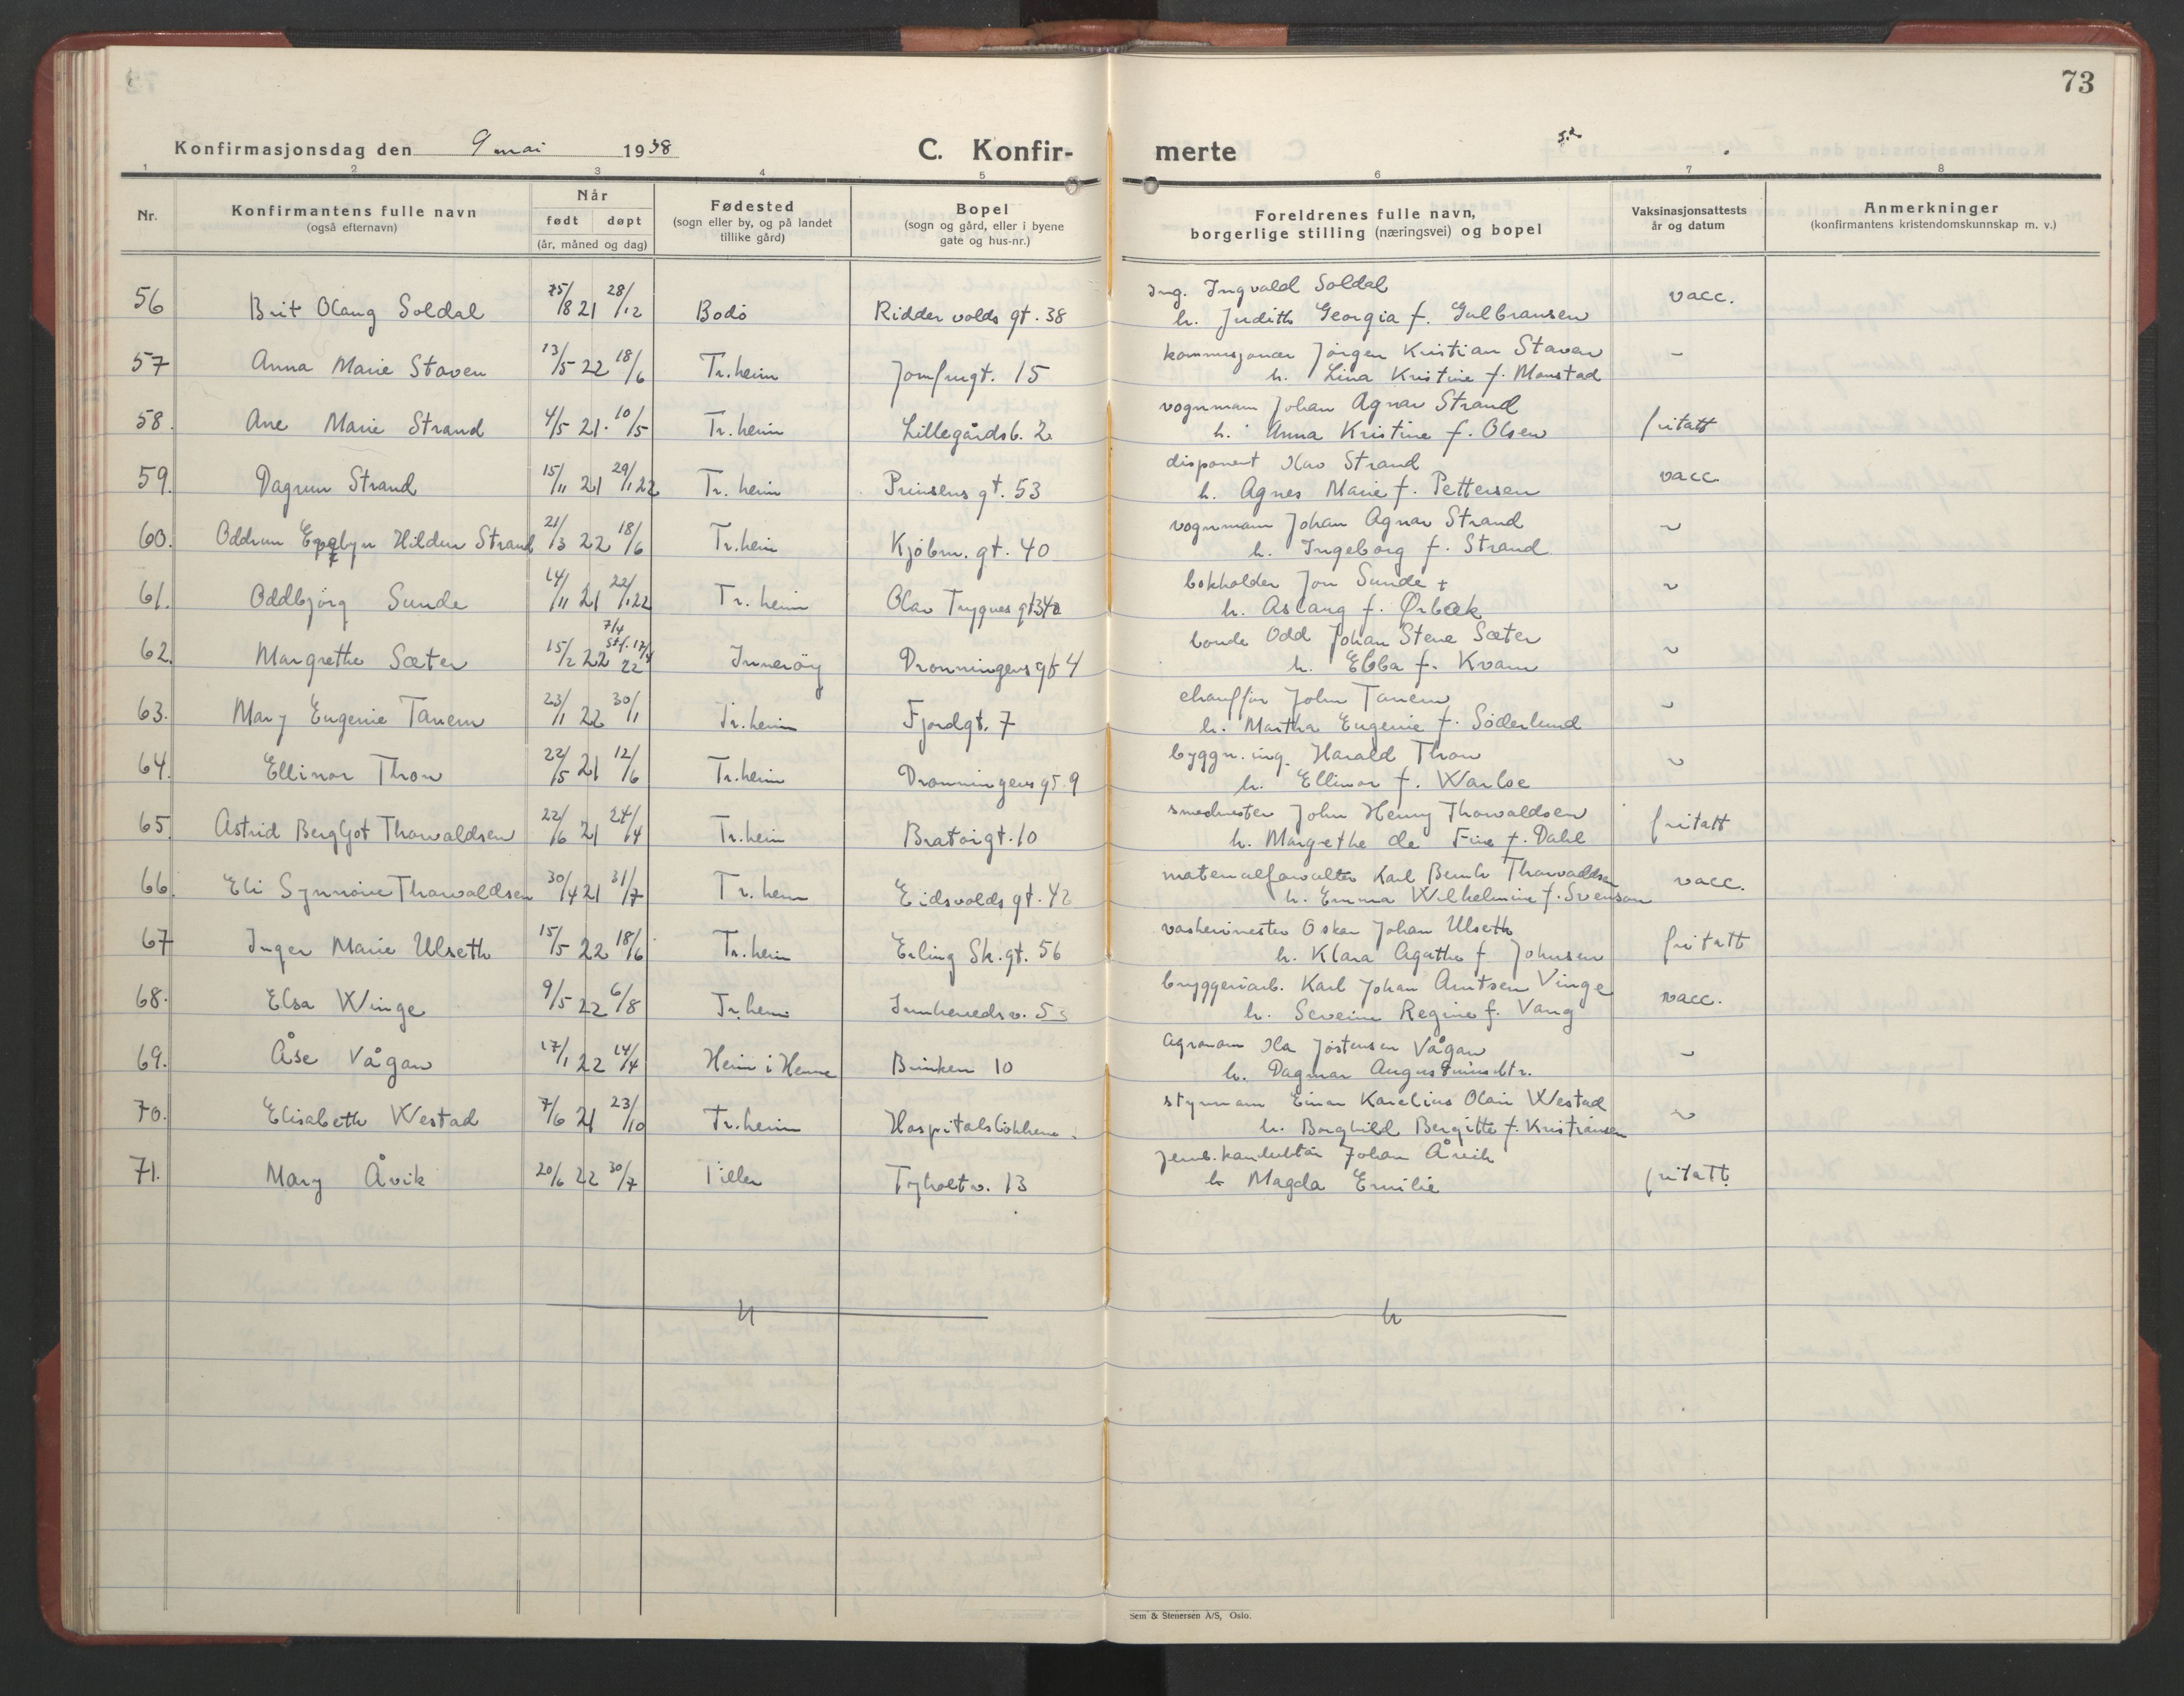 73
Konfirmasjonsdag den 9 mai 1938
C. Konfir- merte
1 2 3 4 5 6 7 8
Nr.
Konfirmantens fulle navn
(også efternavn)
Når
født døpt
(år, måned og dag)
Fødested
(sogn eller by, og på landet
tillike gård)
Bopel
(sogn og gård, eller i byene
gate og hus-nr.)
Foreldrenes fulle navn,
borgerlige stilling (næringsvei) og bopel
Vaksinasjonsattests
år og datum
Anmerkninger
(konfirmantens kristendomskunnskap m. v.)
Ing. Ingvald Soldal
56 Brit Olaug Soldal 25/8 21 28/12 Bodø Riddervolds gt. 38 h. Judith Georgia f. Gulbransen vacc.
kommisjonær Jørgen Kristian Staven
57 Anna Marie Staven 13/5 22 18/6 Tr.heim Jomfrugt. 15 h. Lina Kristine f. Monstad ~
vognmann Johan Agnar Strand
58. Ane Marie Strand 4/5 21. 10/5 Tr.heim Lillegårdsb. 2 h. Anna Kristine f. Olsen fritatt
disponent Olav Strand
59. Dagrun Strand 15/11 21 29/1 22 Tr.heim Prinsens gt. 53 h. Agnes Marie f. Pettersen vacc.
vognmann Johan Agnar Strand
60. Oddrun Hildur Strand 21/3 22 18/6 Tr.heim Kjøbm. gt. 40 h. Ingeborg f. Strand ~
bokholder Jon Sunde +
61. Oddbjørg Sunde 14/11 21 22/1 22 Tr.heim Olav Trygves gt 34a h. Aslaug f. Ørbæk ~
7/4
bonde Odd Johan Stene Sæter
62. Margrethe Sæter 15/2 22 st. f. 17/4 22 Inderøy Dronningens gt 4 h. Ebba f. Kvam ~
chauffør John Tanem
63. Mary Eugenie Tanem 23/1 22 30/1 Tr.heim Fjordgt. 7 h. Martha Eugenie f. Söderlund ~
byggn.ing. Harald Thron
64. Ellinor Thron 22/5 21 12/6 Tr.heim Dronningens gt. 9 h. Ellinor f. Warloe ~
smedmester John Henry Thorvaldsen
65. Astrid Bergljot Thorvaldsen 22/6 21 24/4 Tr.heim Bratørgt. 10 h. Margrethe de Fine f. Dahl fritatt
materialforvalter Karl Bernh. Thorvaldsen
66. Eli Synnøve Thorvaldsen 30/4 21 31/7 Tr.heim Eidsvolds gt. 42 h. Emma Wilhelmine f. Svenson vacc.
vaskerimester Oskar Johan Ulseth
67 Inger Marie Ulseth 15/5 22 18/6 Tr.heim Erling Sk. gt. 56 h. Klara Agathe f. Johnsen fritatt
bryggeriarb. Karl Johan Arntsen Vinge
68. Elsa Winge 9/5 22 6/8 Tr.heim Innherredsv. 53 h. Severine Regine f. Vang vacc.
Agronom Ola Jostensen Vågan
69. Åse Vågan 17/1 22 14/4 Heim i Hemne Brinken 10 h. Dagmar Augustinusdtr. ~
styrmann Einar Karelius Olai Westad
70. Elisabeth Westad 7/6 21 23/10 Tr.heim Hospitalsløkkene h. Borghild Bergitte f. Kristiansen ~
jernb.konduktør Johan Åvik
71. Mary Åvik 20/6 22 30/7 Tiller Tyholtv. 13 h Magda Emilie fritatt.
Sem & Stenersen A/S, Oslo.